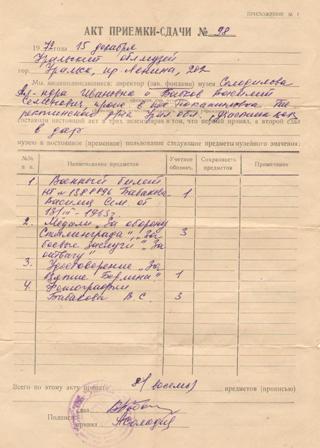 ПРИЛОЖЕНИЕ № 1
АКТ ПРИЕМКИ-СДАЧИ № 98
1972 года 15 декабря
Уральский облмузей
Уральск, пр. Ленина,
Мы, нижеподписавшиеся: директор (зав. фондами) музея Солодилова
Ивановна и Бабаков Василий
Семенович,
составили настоящий акт в трех экземплярах в том, что первый принял, а второй сдал
в дар
музею в постоянное (временное) пользование следующие предметы музейного значения:
№№ п п. Наименование предметов Учетное обознач. Сохранность предметов Примечание
1 Военный билет
НБ № Бабакова
Василия Сем. от
1965 г. 1
2. Медали „За оборону
Сталинграда", „За
боевые заслуги", „За
отвагу" 3
3. Удостоверение „За
взятие Берлина" 1
4 Фотографии
Бабакова В С 3
Всего по этому акту принято 8 (восемь) предметов (прописью)
Подписи: сдал
принял АСолодил